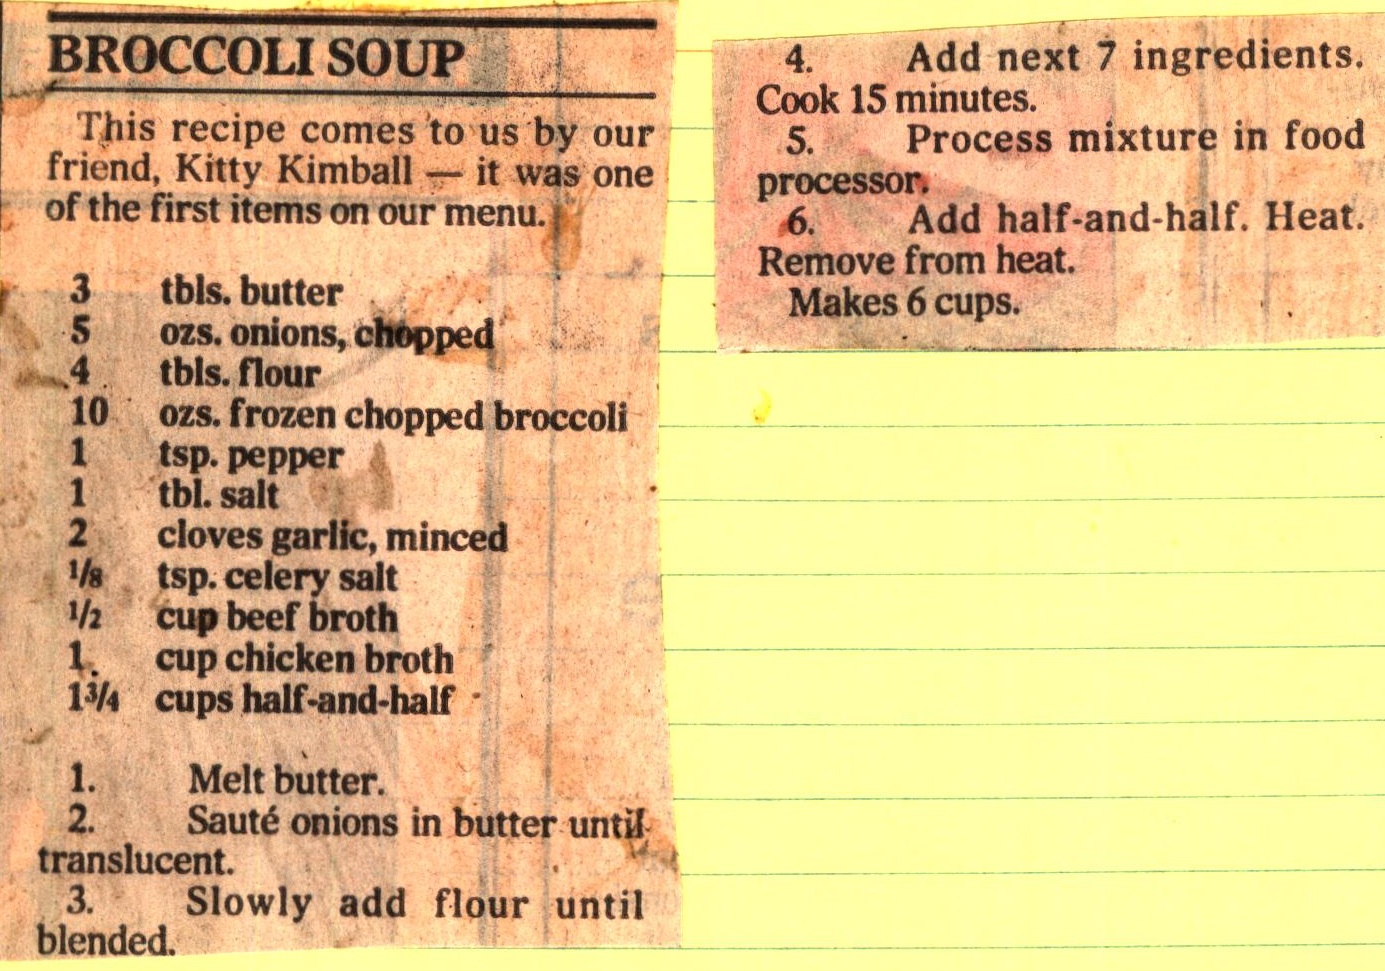 BROCCOLI SOUP
This recipe comes to us by our
friend, Kitty Kimball — it was one
of the first items on our menu.
3 tbls. butter
5 ozs. onions, chopped
4 tbls. flour
10 ozs. frozen chopped broccoli
1 tsp. pepper
1 tbl. salt
2 cloves garlic, minced
1/8 tsp. celery salt
1/2 cup beef broth
1 cup chicken broth
1 3/4 cups half-and-half
1. Melt butter.
2. Sauté onions in butter until
translucent.
3. Slowly add flour until
blended.
4. Add next 7 ingredients.
Cook 15 minutes.
5. Process mixture in food
processor.
6. Add half-and-half. Heat.
Remove from heat.
Makes 6 cups.